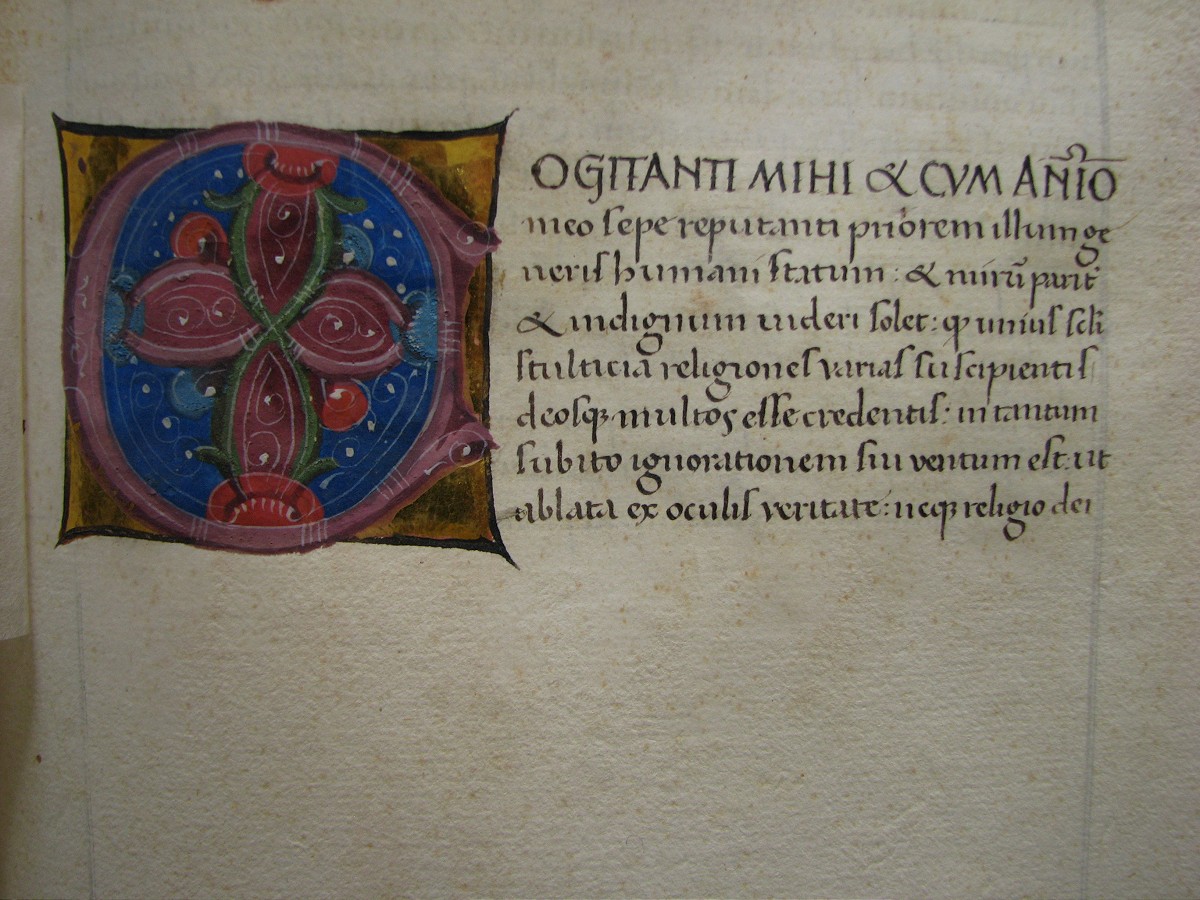 COGITANTI MIHI & CVM AÑIO
meo sepe reputanti priorem illum ge
neris humani statum: & mirū parit̃
& indignum uideri solet: qꝫ unius scl̃i
stulticia religiones varias suscipientis
deosqꝫ multos esse credentis: in tantum
subito ignorationem sui ventum est: ut
ablata ex oculis veritate: neqꝫ religio dei